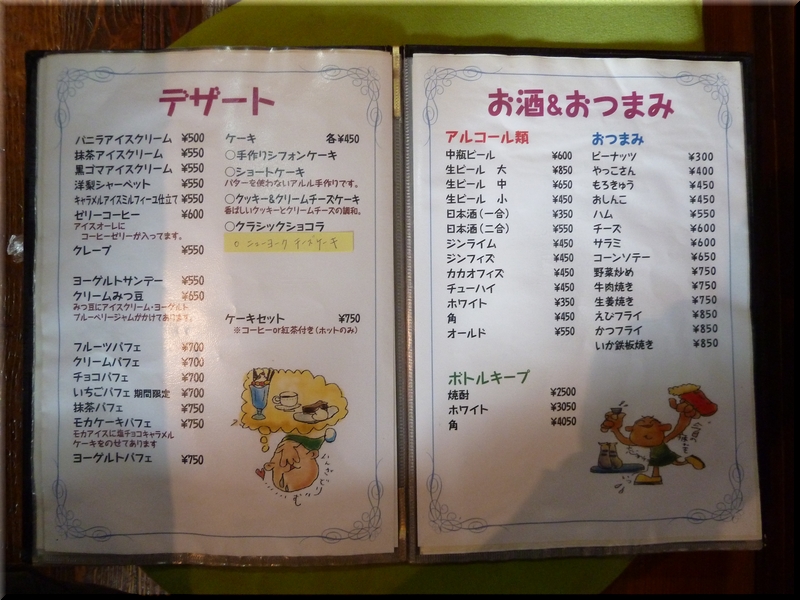 デザート
バニラアイスクリーム ¥500
抹茶アイスクリーム ¥550
黒ゴマアイスクリーム ¥550
洋梨シャーベット ¥550
キャラメルアイスミルフィーユ仕立て ¥550
ゼリーコーヒー ¥600
アイスオーレに
コーヒーゼリーが入ってます。
クレープ ¥550
ヨーグルトサンデー ¥550
クリームみつ豆 ¥650
みつ豆にアイスクリーム・ヨーグルト
ブルーベリージャムがかけてあります。
フルーツパフェ ¥700
クリームパフェ ¥700
チョコパフェ ¥700
いちごパフェ 期間限定 ¥700
抹茶パフェ ¥750
モカケーキパフェ ¥750
モカアイスに塩チョコキャラメル
ケーキをのせてあります
ヨーグルトパフェ ¥750
ケーキ 各¥450
○手作りシフォンケーキ
○ショートケーキ
バターを使わないアルル手作りです。
○クッキー&クリームチーズケーキ
香ばしいクッキーとクリームチーズの調和。
○クラシックショコラ
○ ニューヨーク チーズケーキ
ケーキセット ¥750
※コーヒーor紅茶付き(ホットのみ)
お酒&おつまみ
アルコール類
中瓶ビール ¥600
生ビール 大 ¥850
生ビール 中 ¥650
生ビール 小 ¥450
日本酒(一合) ¥350
日本酒(二合) ¥550
ジンライム ¥450
ジンフィズ ¥450
カカオフィズ ¥450
チューハイ ¥450
ホワイト ¥350
角 ¥450
オールド ¥550
ボトルキープ
焼酎 ¥2500
ホワイト ¥3050
角 ¥4050
おつまみ
ピーナッツ ¥300
やっこさん ¥400
もろきゅう ¥450
おしんこ ¥450
ハム ¥550
チーズ ¥600
サラミ ¥600
コーンソテー ¥650
野菜炒め ¥750
牛肉焼き ¥750
生姜焼き ¥750
えびフライ ¥850
かつフライ ¥850
いか鉄板焼き ¥850